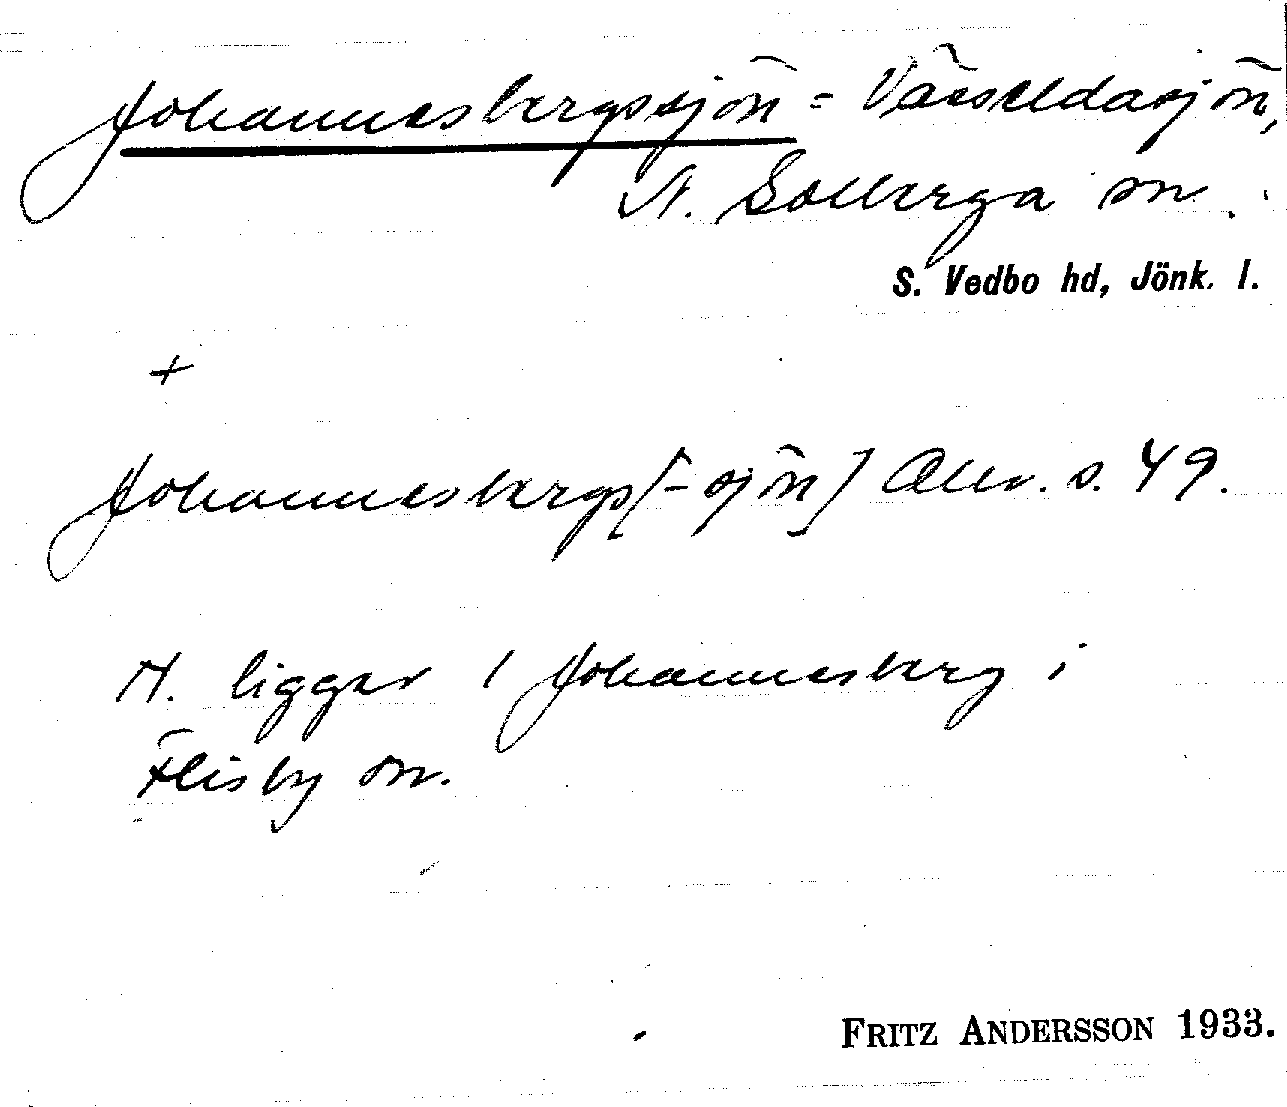 Johannesbergssjön = Vässeldasjön,
N. Solberga sn.
S. Vedbo hd, Jönk. l.
+
Johannesbergs[-sjön] Allv. s. 49.
N. ligger / Johannesberg i
Flisby sn.
FRITZ ANDERSSON 1933.